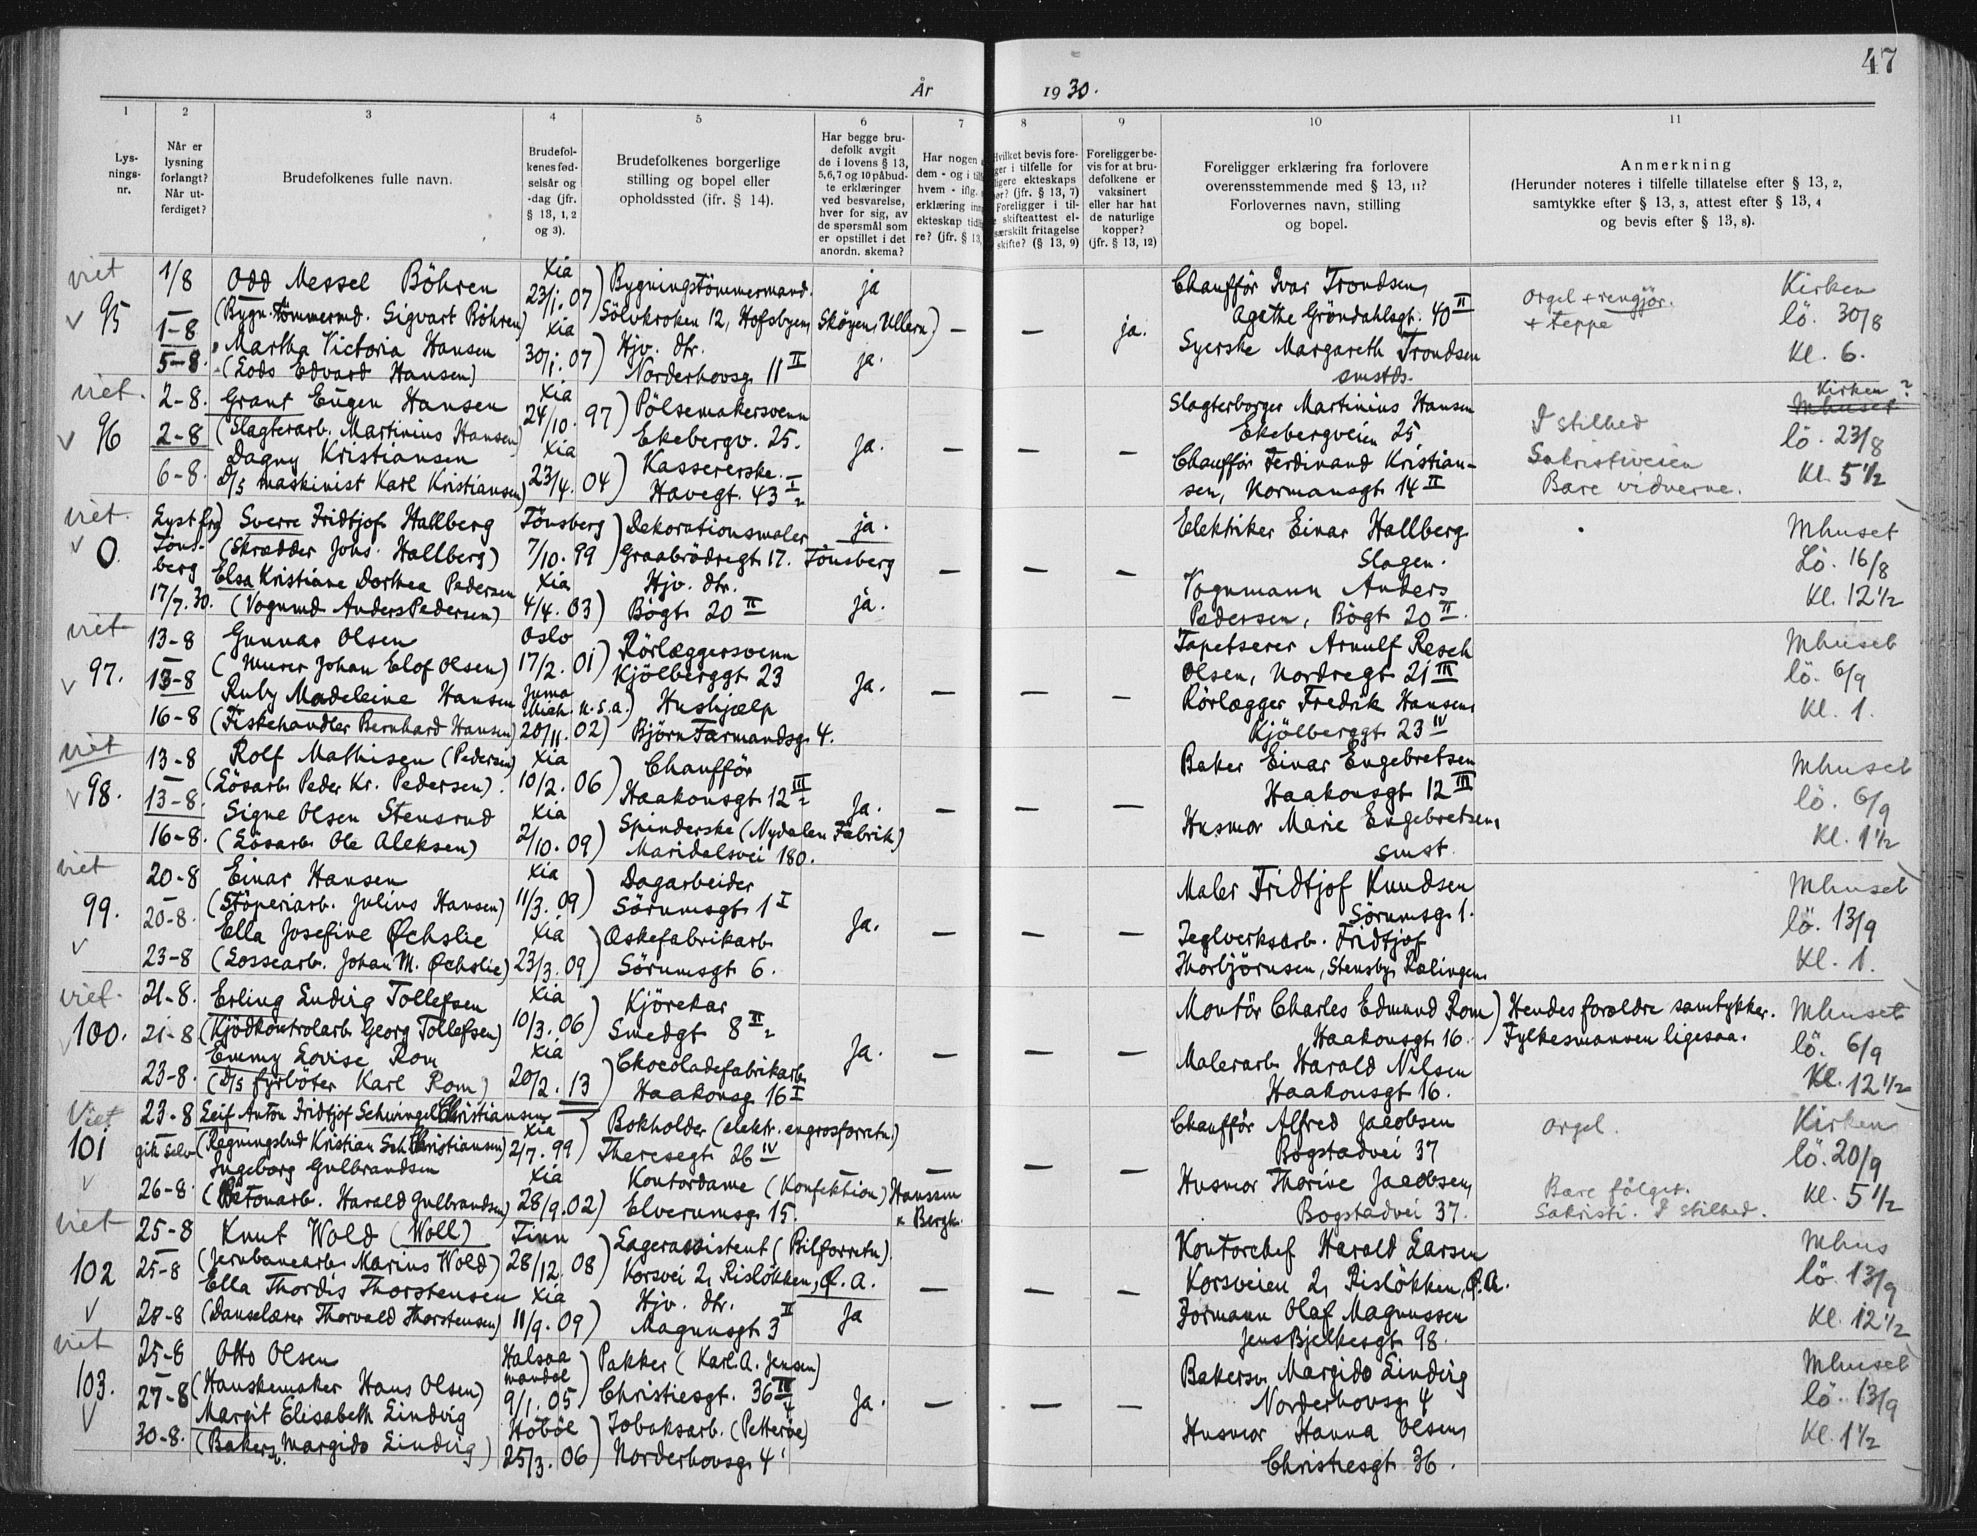 47
År 1930.
1 2 3 4 5 6 7 8 9 10 11
Lys-
nings-
nr.
Når er
lysning
forlangt?
Når ut-
ferdiget?
Brudefolkenes fulle navn.
Brudefol-
kenes fød-
selsår og
-dag (jfr.
§ 13, 1, 2
og 3).
Brudefolkenes borgerlige
stilling og bopel eller
opholdssted (ifr. § 14).
Har begge bru-
defolk avgit
de i lovens § 13,
5,6,7 og 10 påbud-
te erklæringer
ved besvarelse,
hver for sig, av
de spørsmål som
er opstillet i det
anordn. skema?
Har nogen
dem - og i
hvem - iflg.
erklæring
ekteskap
re? (jfr. § 13,
Hvilket bevis fore-
ger i tilfelle for
ligere ekteskaps
(jfr. § 13, 7)
Foreligger i til-
skifteattest el-
særskilt fritagelse
skifte? (§ 13, 9)
Foreligger be-
vis for at bru-
defolkene er
vaksinert
eller har hat
de naturlige
kopper?
(jfr. § 13, 12)
Foreligger erklæring fra forlovere
overensstemmende med § 13, 11?
Forlovernes navn, stilling
og bopel.
Anmerkning
(Herunder noteres i tilfelle tillatelse efter § 13, 2,
samtykke efter § 13, 3, attest efter § 13, 4
og bevis efter § 13, 8).
viet 1/8 Odd Messel Böhren Xia Bygningstömmermand. ja Chaufför Ivar Trondsen, Orgel + rengjör. Kirken
v 95 (Bygn. Tömmermd. Sigvart Böhren) 23/1. 07) Sölvkroken 12, Hofsbyen, Skøyen, Ullern) — — ja. Agathe Gröndahlsgt. 40 II + teppe lö. 30/8
1-8 Martha Victoria Hansen Xia Hjv. dtr. Syerske Margareth Trondsen Kl. 6.
5-8. (Lods Edvard Hansen) 30/1. 07) Norderhovsg. 11 II ja. smstds.
viet. 2-8. Grant Eugen Hansen Xia Pölsemakersvenn Slagterborger Martinius Hansen Kirken?
v 96 2-8 (Slagterarb. Martinius Hansen) 24/10. 97) Ekebergv. 25. ja. — — — Ekebergveien 25, I stilhed Mhuset lö. 23/8
Dagny Kristiansen Xia Kassererske. Chaufför Ferdinand Kristian- Sakristiveien Kl. 5 1/2
6-8. d/s maskinist Karl Kristiansen) 23/4. 04) Havegt. 43 I sen, Normansgt. 14 II Bare vidnerne.
viet. Lyst frg) Sverre Fridtjof Hallberg Tönsberg Dekorationsmaler ja. Elektriker Einar Hallberg Mhuset
v 0 Töns- (Skrædder Johs. Hallberg) 7/10. 99 Graabrödregt. 17. Tönsberg Slagen. Lö. 16/8
berg Elsa Kristiane Dorthea Pedersen Xia Hjv. dtr. — — — Vognmann Anders Kl. 12 1/2
17/7.30. (Vognmd. Anders Pedersen) 4/4. 03) Bögt. 20 II ja. Pedersen, Bögt 20 II.
viet 13-8 Gunnar Olsen Oslo Rörlæggersvenn Tapetserer Arnulf Resch Mhuset
v 97. 13-8 (Murer Johan Elof Olsen) 17/2. 01) Kjölberggt 23 Ja. — — — Olsen, Nordregt 21 III lö. 6/9
Ruby Madeleine Hansen Mich. U.S.A.) Hushjælp Rörlægger Fredrik Hansen, Kl. 1.
16-8 (Fiskehandler Bernhard Hansen) 20/11. 02) Björn Farmandsg. 4. Kjölberggt 23 IV
viet 13-8 Rolf Mathisen (Pedersen) Xia Chaufför Baker Einar Engebretsen Mhuset
v 98. 13-8. (Lösarb. Peder Kr. Pedersen). 10/2. 06) Haakonsgt. 12 III Ja. — — — Haakonsgt. 12 III lö. 6/9
Signe Olsen Stensrud Xia Spinderske (Nydalen Fabrik) Husmor Marie Engebretsen, Kl. 1 1/2
16-8. (Lösarb. Ole Aleksen) 2/10. 09) Maridalsvei 180. smst.
viet 20-8 Einar Hansen Xia Dagarbeider Maler Fridtjof Knudsen Mhuset
99. 20-8. (Stöperiarb. Julius Hansen) 11/3. 09) Sörumsgt 1 I Ja. — — — Sörumsg. 1. lö. 13/9
v Ella Josefine Øchslie Xia Æskefabrikarb. Teglverksarb. Fridtjof Kl. 1.
23-8 (Lossearb. Johan M. Øchslie) 23/3. 09) Sörumsgt 6. Thorbjörnsen, Stensby, Rælingen.
viet. 21-8. Erling Ludvig Tollefsen Xia Kjörekar Montör Charles Edmund Rom) Hendes forældre samtykker. Mhuset
v 100. 21-8 (Kjödkontrolarb. Georg Tollefsen) 10/3. 06) Smedgt 8 II Ja. — — — Haakonsgt. 16. Fylkesmannen ligesaa. lö. 6/9
Emmy Lovise Rom Xia Chocoladefabrikarb. Malerarb. Harald Nilsen Kl. 12 1/2
23-8. (d/s fyrböter Karl Rom) 20/2. 13) Haakonsg. 16 I Haakonsgt 16.
Viet 23-8 Leif Anton Fridtjof Schwingel Christiansen Xia Bokholder (elektr. engrosforretn.) Chaufför Alfred Jacobsen Orgel. Kirken
101 gik selv (Regningsbud Kristian Sch. Christiansen) 2/7. 99) Theresegt. 26 IV — — — Bogstadvei 37 lö. 20/9
v Ingeborg Gulbrandsen Xia Kontordame (Konfektion) Hanssen Husmor Thorine Jacobsen, Bare fölget. Kl. 5 1/2
26-8. (Betonarb. Harald Gulbrandsen) 28/9. 02) Elverumsg. 15. & Bergh. Bogstadvei 37. Sakristi. I stilhed.
viet 25-8 Knut Wold (Woll) Finn Lagerassistent (Bilforretn). Kontorchef Harald Larsen Mhus
102 25-8 (Jernbanearb. Marius Wold) 28/12. 08) Korsvei 2, Risløkken, Ø.A. — — — Korsveien 2, Risløkken, Ø.A. lö. 13/9
v Ella Thordis Thorstensen Xia Hjv. dtr. Formann Olaf Magnussen Kl. 12 1/2
28-8 (Danselærer Thorvald Thorstensen) 11/9. 09) Magnusgt 3 II Ja Jens Bjelkesgt 98.
viet 25-8 Otto Olsen Halsaa Pakker (Karl. A. Jensen) Bakersv. Margido Lindvig Mhuset
103. 27-8 (Hanskemaker Hans Olsen) mandal 9/1. 05) Christiesgt. 36 III Ja. — — — Norderhovsg. 4 lö. 13/9
v Margit Elisabeth Lindvig Höböl Tobaksarb. (Petterøe) Husmor Hanna Olsen, Kl. 1 1/2
30-8. (Bakersv. Margido Lindvig) 25/3. 06) Norderhovsg. 4 Christiesgt 36.